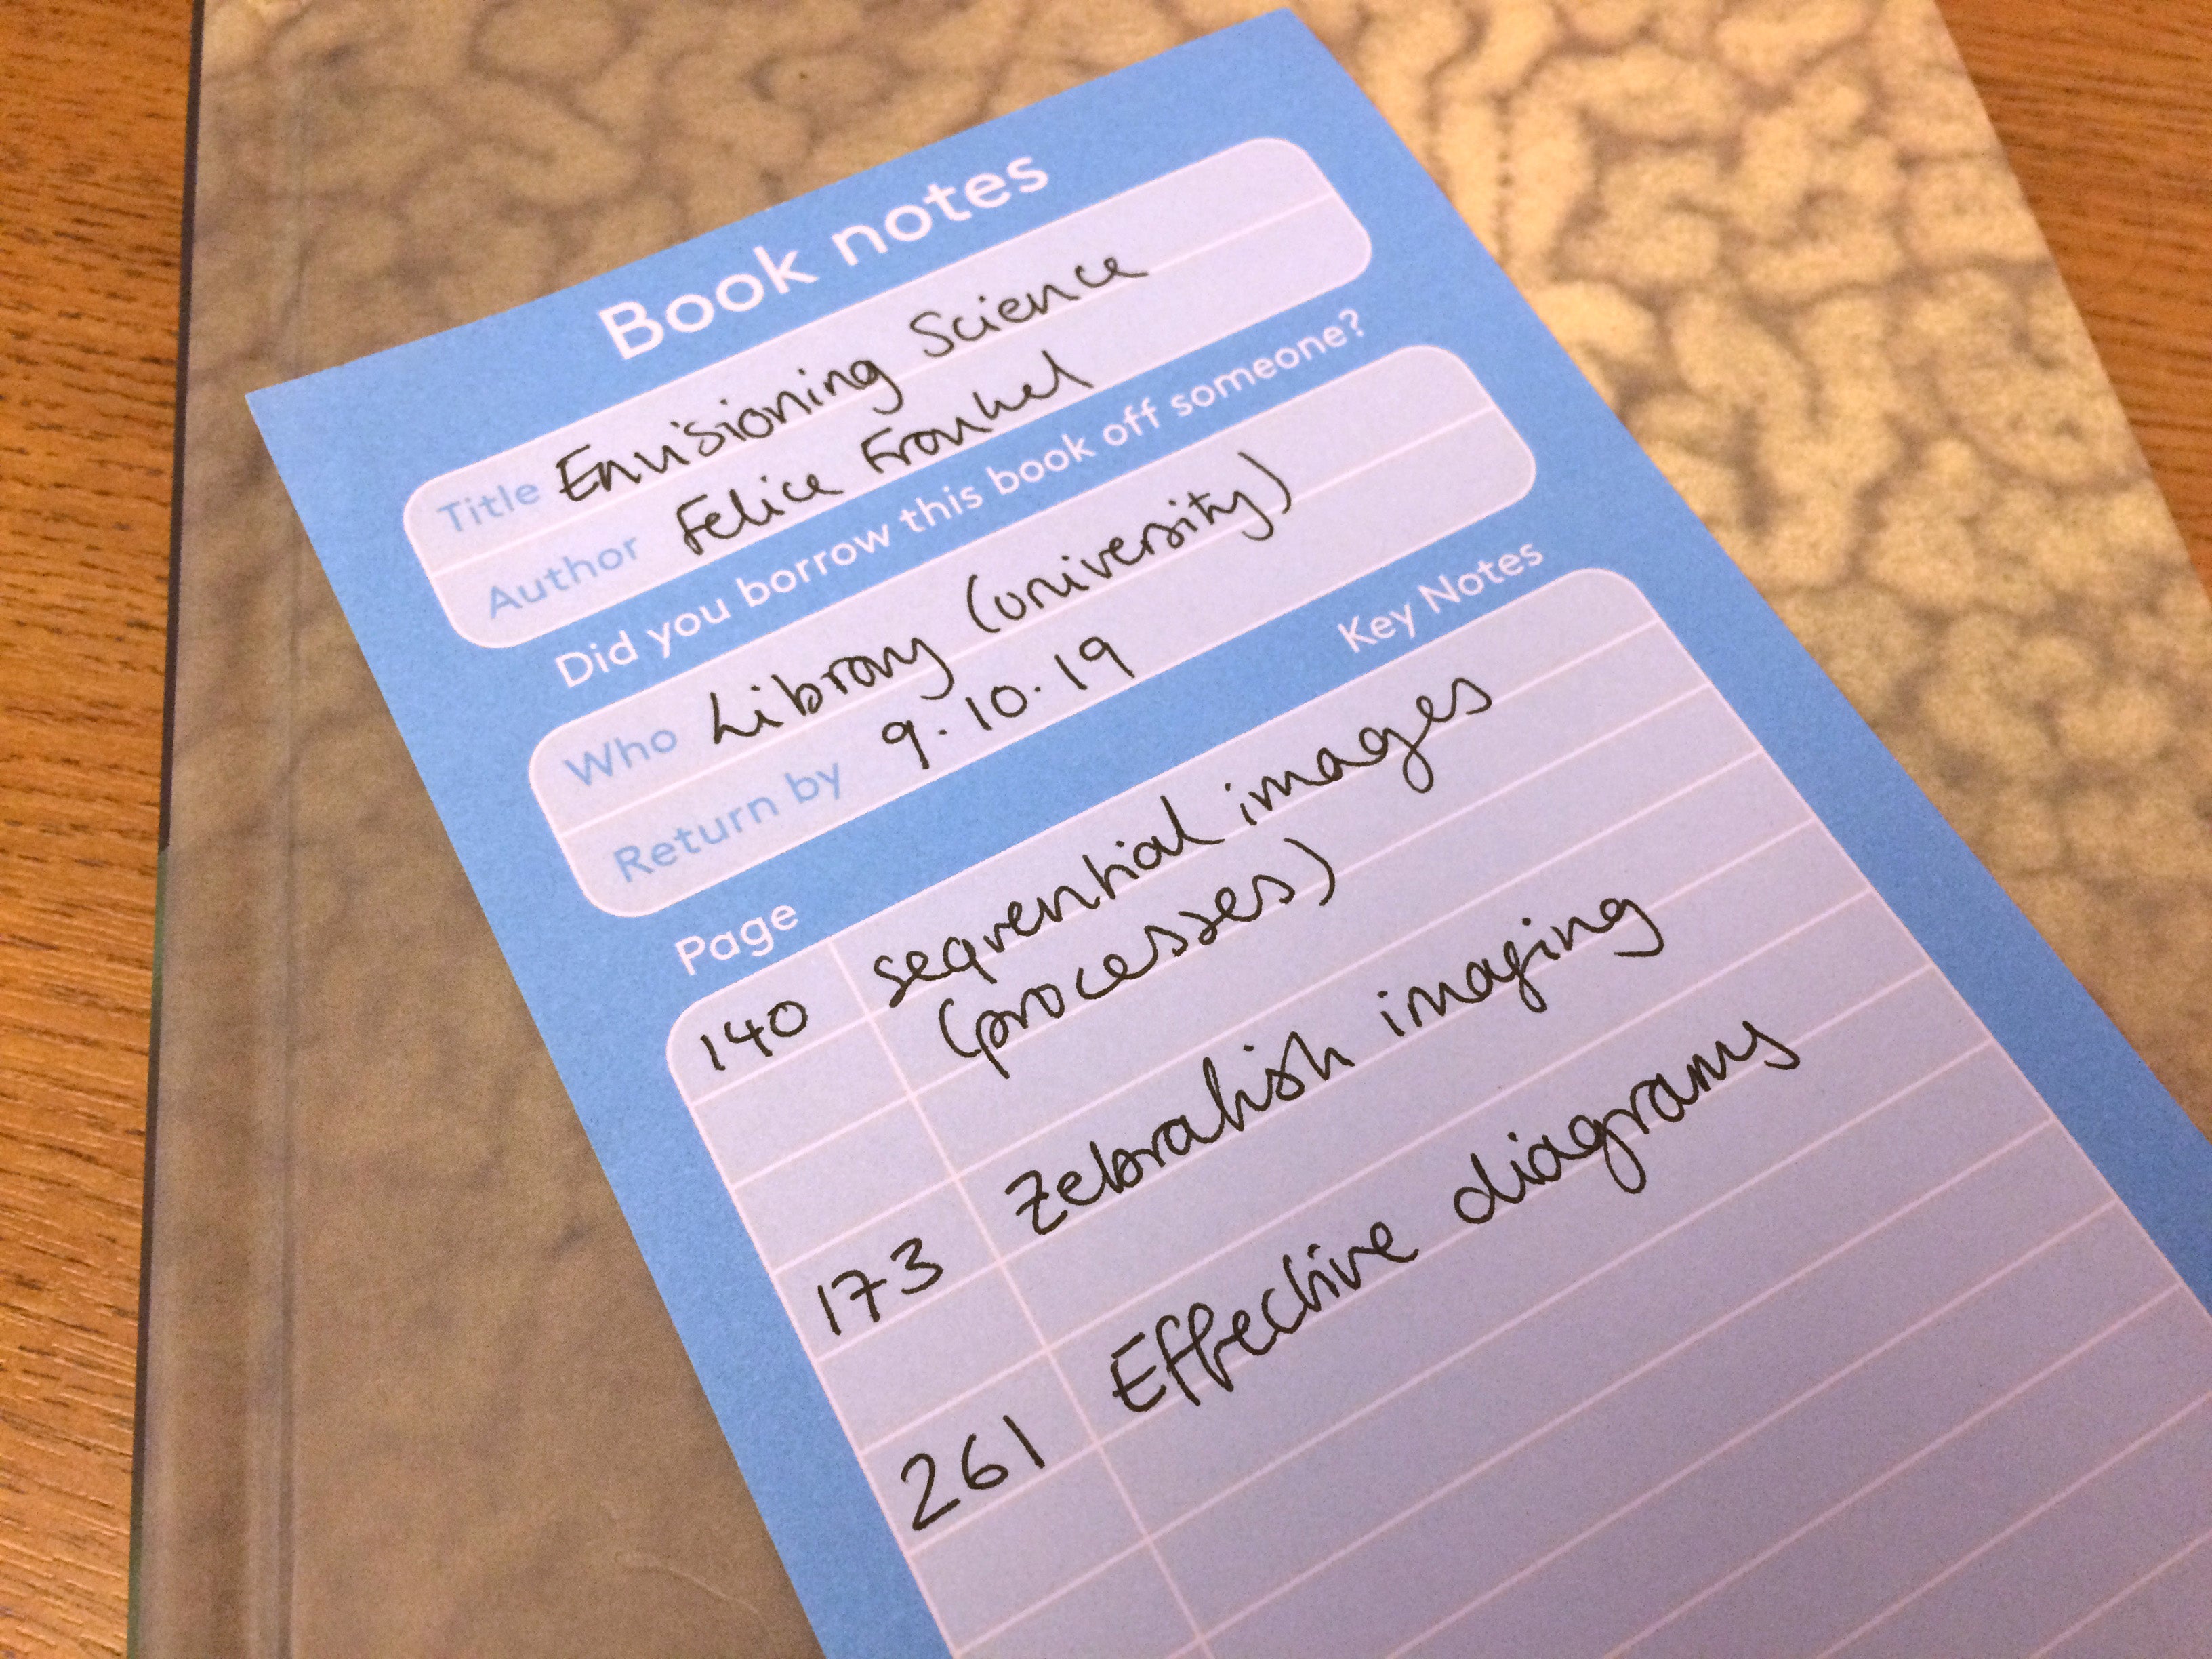 Book notes
Title Envisioning Science
Author Felice Frankel
Did you borrow this book off someone?
Who Library (university)
Return by 9.10.19
Page Key Notes
140 sequential images
(processes)
173 Zebrafish imaging
261 Effective diagrams